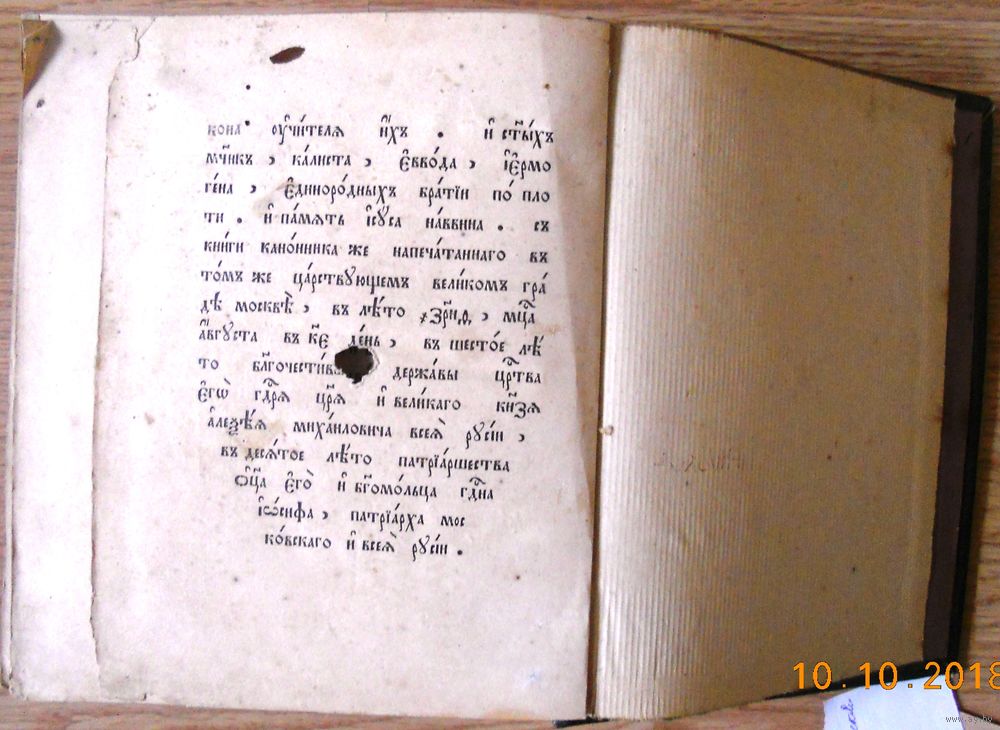 кона оу҆чи́телѧ и҆́хъ . и҆ ст҃ы́хъ
мч҃нкъ , ка́листа , є҆ввѡ́да , і҆є҆рмо
ге́на , є҆динорѡ́дныхъ бра́тїи по́ пло
ти . и҆ па́мѧть і҆сꙋ́са на́ввина . съ
кни́ги кано́нника же напеча́таннаго въ
то́мъ же ца́рствꙋющемъ вели́комъ гра́
дѣ москвѣ̀ , въ лѣ́то ҂зрн҃ѳ , мц҃а
а҆́вгꙋста въ к҃є де́нь , въ шесто́е лѣ́
то держа́вы црⷭ҇тва
є҆гѡ̀ гдⷭ҇рѧ цр҃ѧ и҆ вели́каго кн҃зѧ
а҆леѯѣ́ѧ миха́иловича всеѧ̀ рꙋсі́и ,
въ десѧ́тое лѣ́то патрїа́ршества
ѻ҆ц҃а є҆гѡ̀ и҆ бг҃омо́льца гдⷭ҇на
і҆ѡ́сифа , патрїа́рха мос
ко́вскаго и҆ всеѧ̀ рꙋсі́и .
10.10.2018
www.ay.by